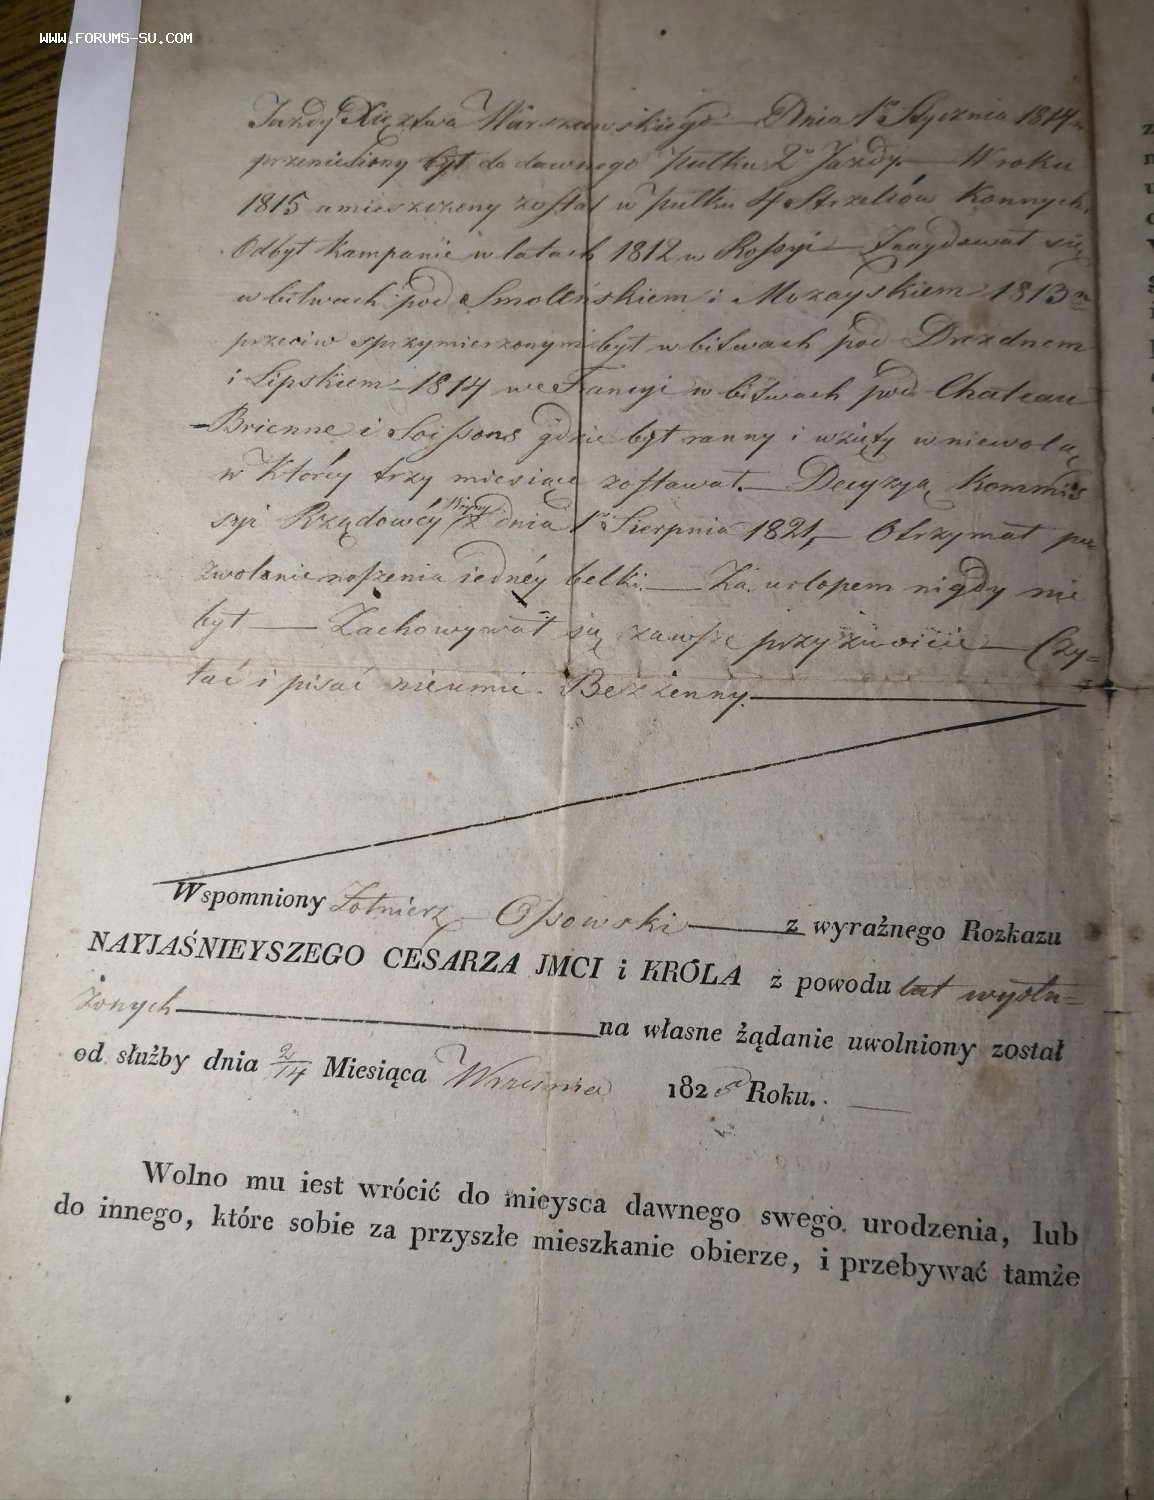 www.forums-su.com
Jazdy Xięztwa Warszawskiego — Dnia 1o Stycznia 1814
przeniesiony był do dawnego Pułku 2o Jazdy. — W roku
1815 umieszczony został w pułku 4 Strzelców Konnych.
Odbył kampanie w latach 1812 w Rossyi — Znaydował się
w bitwach pod Smoleńskiem i Mozayskiem 1813
przeciw sprzymierzonym był w bitwach pod Dreznem
i Lipskiem — 1814 we Francyi w bitwach pod Chateau
-Brienne i Soissons gdzie był ranny i wzięty w niewolą
w którey trzy miesiące zostawał. — Decyzyą Kommis
syi Rządowéy Woyny z dnia 1o Sierpnia 1821, — Otrzymał po
zwolenie noszenia iednéy belki. — Za urlopem nigdy nie
był — Zachowywał się zawsze przyzwoicie — Czy-
tać i pisać nieumie. Bezżenny.
Wspomniony Żołnierz Ossowski — z wyraźnego Rozkazu
NAYJAŚNIEYSZEGO CESARZA JMCI i KRÓLA z powodu lat wysłu-
żonych — na własne żądanie uwolniony został
od służby dnia 2/14 Miesiąca Września 182 Roku.
Wolno mu iest wrócić do mieysca dawnego swego urodzenia, lub
do innego, które sobie za przyszłe mieszkanie obierze, i przebywać tamże